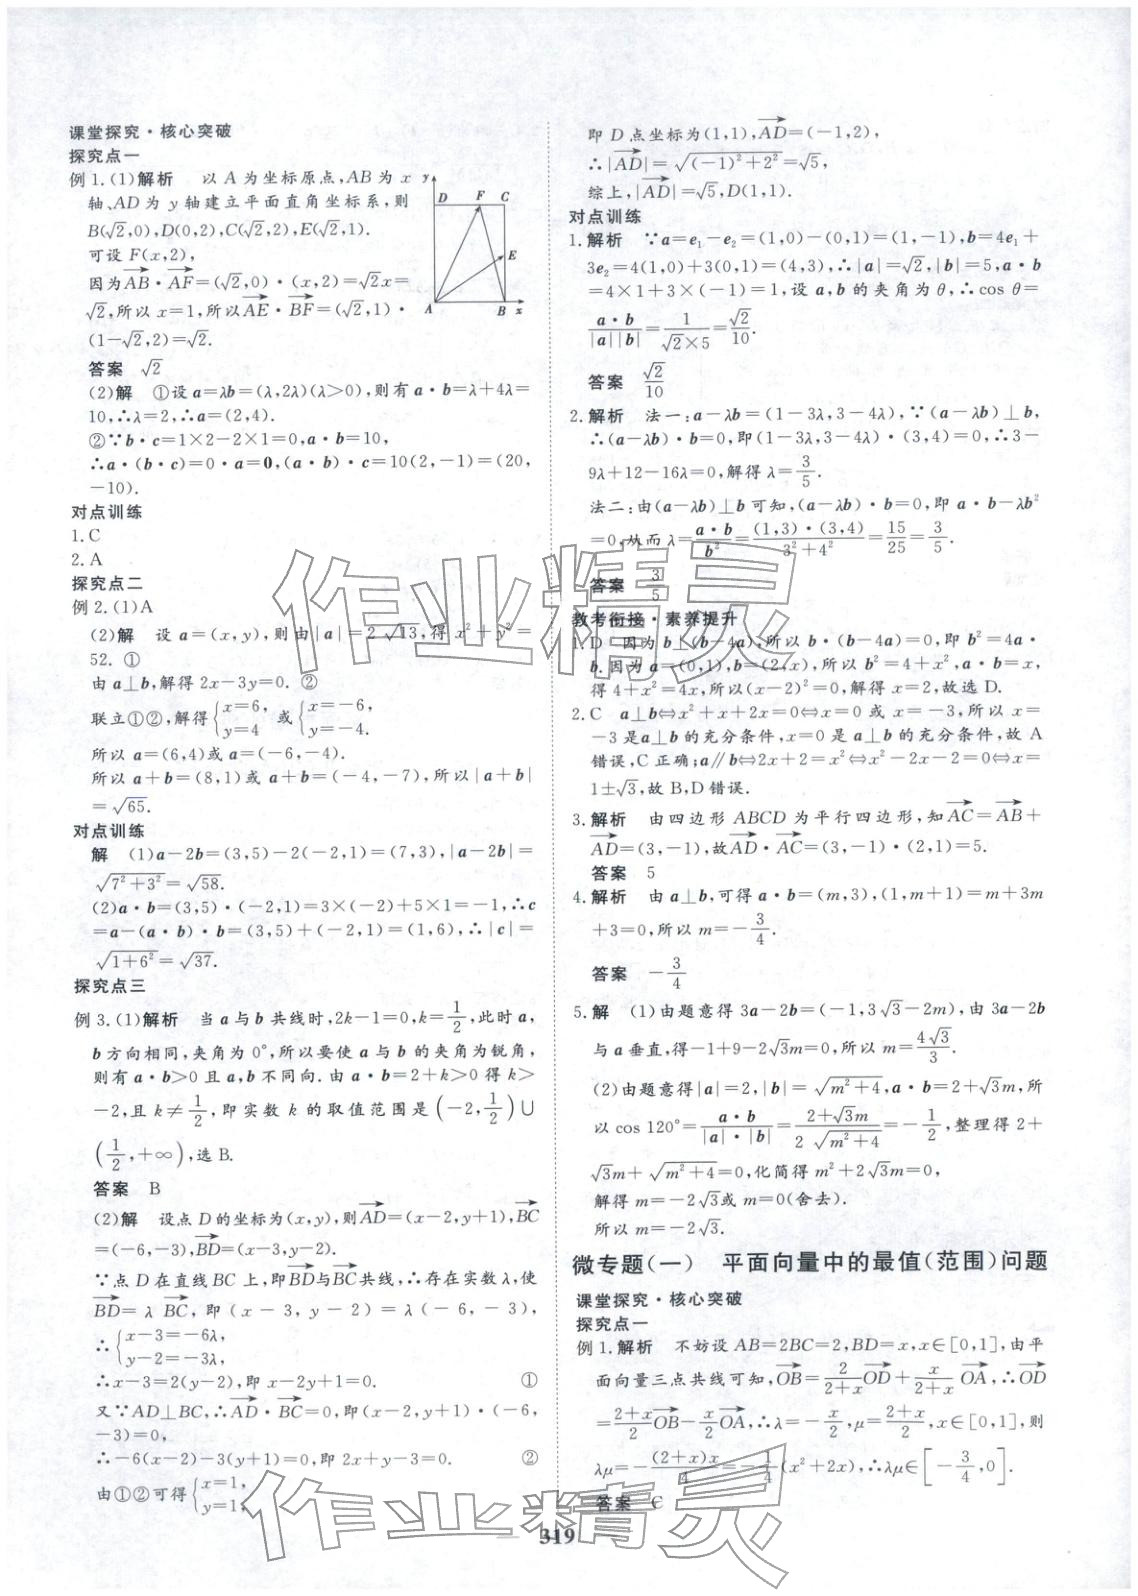 课堂探究·核心突破
探究点一
例1.(1)解析 以A为坐标原点,AB为x
轴、AD为y轴建立平面直角坐标系,则
B(√2,0),D(0,2),C(√2,2),E(√2,1).
可设F(x,2),
因为AB·AF=(√2,0)·(x,2)=√2x=
√2,所以x=1,所以AE·BF=(√2,1)·
(1-√2,2)=√2.
y
D F C
E
A B x
答案 √2
(2)解 ①设a=λb=(λ,2λ)(λ>0),则有a·b=λ+4λ=
10,∴λ=2,∴a=(2,4).
②∵b·c=1×2-2×1=0,a·b=10,
∴a·(b·c)=0·a=0,(a·b)·c=10(2,-1)=(20,
-10).
对点训练
1.C
2.A
探究点二
例2.(1)A
(2)解 设a=(x,y),则由|a|=2√13,得x²+y²=
52. ①
由a⊥b,解得2x-3y=0. ②
联立①②,解得{x=6,y=4 或{x=-6,y=-4.
所以a=(6,4)或a=(-6,-4).
所以a+b=(8,1)或a+b=(-4,-7),所以|a+b|
=√65.
对点训练
解 (1)a-2b=(3,5)-2(-2,1)=(7,3),|a-2b|=
√(7²+3²)=√58.
(2)a·b=(3,5)·(-2,1)=3×(-2)+5×1=-1,∴c
=a-(a·b)·b=(3,5)+(-2,1)=(1,6),∴|c|=
√(1+6²)=√37.
探究点三
例3.(1)解析 当a与b共线时,2k-1=0,k=1/2,此时a,
b方向相同,夹角为0°,所以要使a与b的夹角为锐角,
则有a·b>0且a,b不同向.由a·b=2+k>0得k>
-2,且k≠1/2,即实数k的取值范围是(-2,1/2)∪
(1/2,+∞),选B.
答案 B
(2)解 设点D的坐标为(x,y),则AD=(x-2,y+1),BC
=(-6,-3),BD=(x-3,y-2).
∵点D在直线BC上,即BD与BC共线,∴存在实数λ,使
BD=λBC,即(x-3,y-2)=λ(-6,-3),
∴{x-3=-6λ,y-2=-3λ.
∴x-3=2(y-2),即x-2y+1=0. ①
又∵AD⊥BC,∴AD·BC=0,即(x-2,y+1)·(-6,
-3)=0,
∴-6(x-2)-3(y+1)=0,即2x+y-3=0. ②
由①②可得{x=1,y=1,
即D点坐标为(1,1),AD=(-1,2),
∴|AD|=√((-1)²+2²)=√5,
综上,|AD|=√5,D(1,1).
对点训练
1.解析 ∵a=e₁-e₂=(1,0)-(0,1)=(1,-1),b=4e₁+
3e₂=4(1,0)+3(0,1)=(4,3),∴|a|=√2,|b|=5,a·b
=4×1+3×(-1)=1,设a,b的夹角为θ,∴cos θ=
a·b/(|a||b|)=1/(√2×5)=√2/10.
答案 √2/10
2.解析 法一:a-λb=(1-3λ,3-4λ),∵(a-λb)⊥b,
∴(a-λb)·b=0,即(1-3λ,3-4λ)·(3,4)=0,∴3-
9λ+12-16λ=0,解得λ=3/5.
法二:由(a-λb)⊥b可知,(a-λb)·b=0,即a·b-λb²
=0,从而λ=a·b/b²=(1,3)·(3,4)/(3²+4²)=15/25=3/5.
答案 3/5
教考衔接·素养提升
1.D 因为b⊥(b-4a),所以b·(b-4a)=0,即b²=4a·
b.因为a=(0,1),b=(2,x),所以b²=4+x²,a·b=x,
得4+x²=4x,所以(x-2)²=0,解得x=2,故选D.
2.C a⊥b⇔x²+x+2x=0⇔x=0或x=-3,所以x=
-3是a⊥b的充分条件,x=0是a⊥b的充分条件,故A
错误,C正确;a∥b⇔2x+2=x²⇔x²-2x-2=0⇔x=
1±√3,故B,D错误.
3.解析 由四边形ABCD为平行四边形,知AC=AB+
AD=(3,-1),故AD·AC=(3,-1)·(2,1)=5.
答案 5
4.解析 由a⊥b,可得a·b=(m,3),(1,m+1)=m+3m
+3=0,所以m=-3/4.
答案 -3/4
5.解 (1)由题意得3a-2b=(-1,3√3-2m),由3a-2b
与a垂直,得-1+9-2√3m=0,所以m=4√3/3.
(2)由题意得|a|=2,|b|=√(m²+4),a·b=2+√3m,所
以cos 120°=a·b/(|a|·|b|)=(2+√3m)/(2√(m²+4))=-1/2,整理得2+
√3m+√(m²+4)=0,化简得m²+2√3m=0,
解得m=-2√3或m=0(舍去).
所以m=-2√3.
微专题(一) 平面向量中的最值(范围)问题
课堂探究·核心突破
探究点一
例1.解析 不妨设AB=2BC=2,BD=x,x∈[0,1],由平
面向量三点共线可知,OB=2/(2+x)OD+x/(2+x)OA,∴OD
=(2+x)/2 OB-x/2 OA,∴λ=-x/2,μ=(2+x)/2,x∈[0,1],则
λμ=-(2+x)x/4=-1/4(x²+2x),∴λμ∈[-3/4,0].
答案 C
319
作业精灵
作业精灵